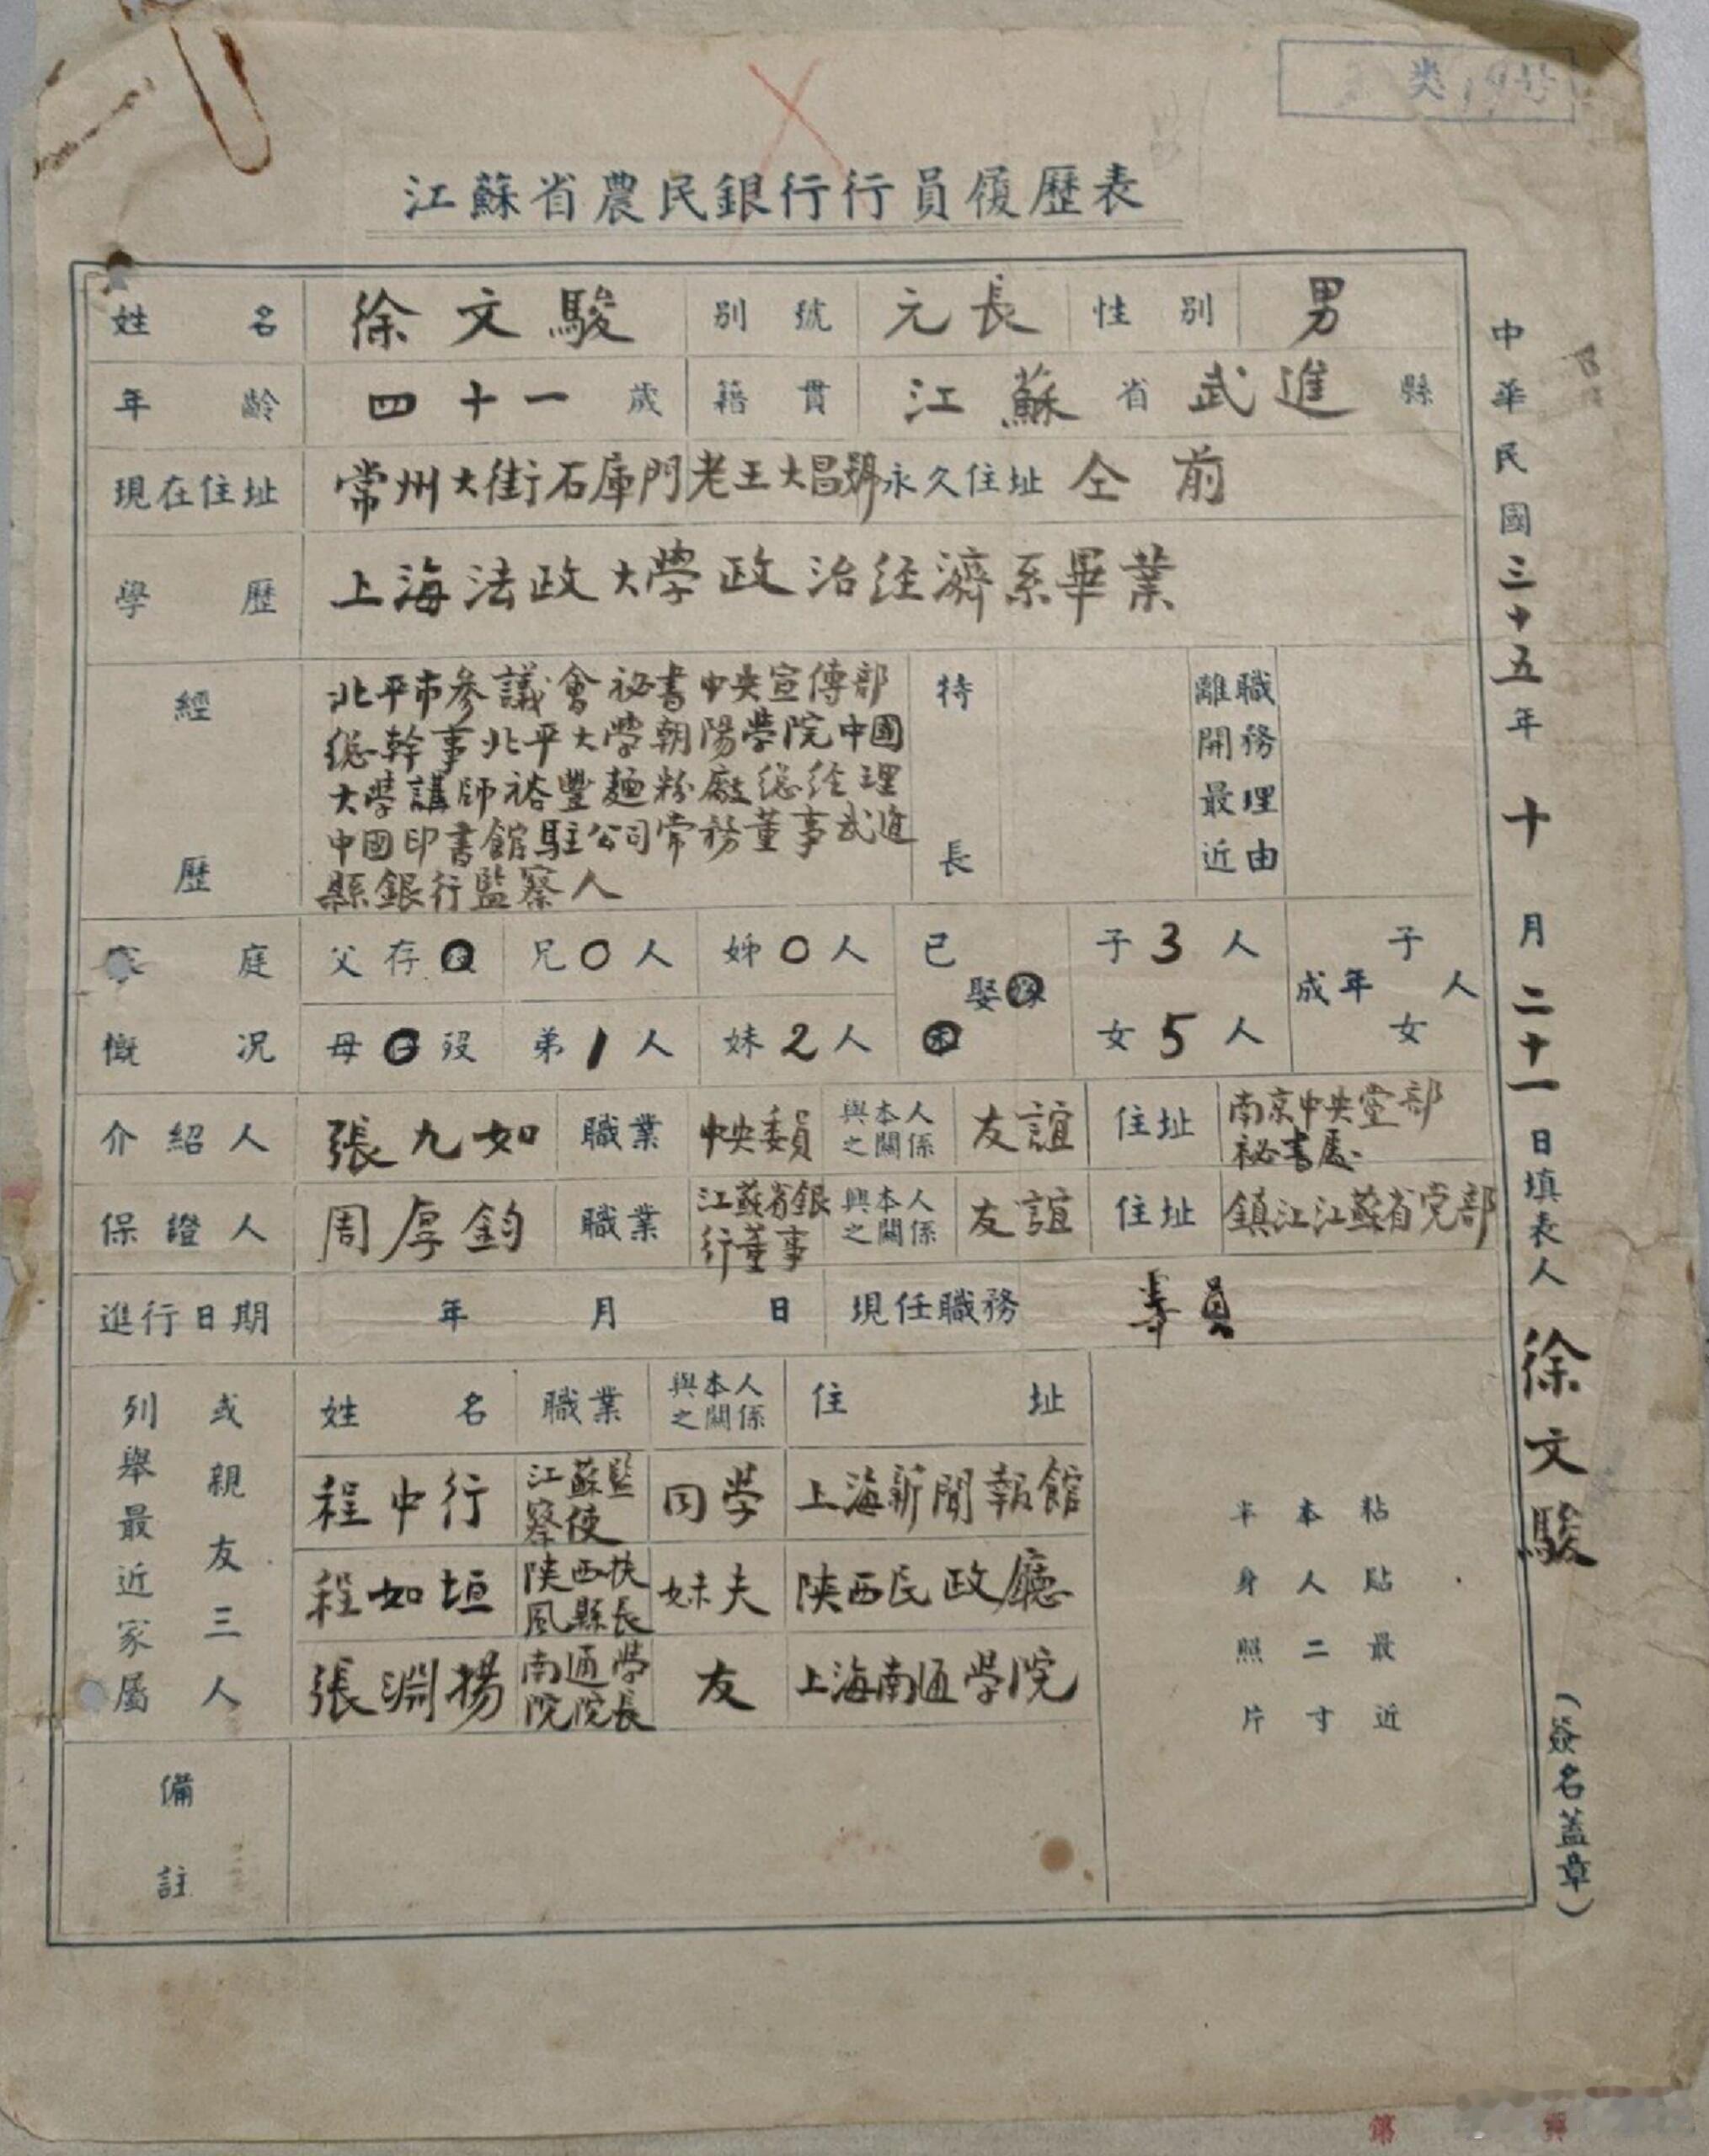 江蘇省農民銀行行員履歷表
姓名 徐文駿 別號 元長 性別 男
年齡 四十一歲 籍貫 江蘇省武進縣
現在住址 常州大街石庫門老王大昌號 永久住址 仝前
學歷 上海法政大學政治經濟系畢業
經歷
北平市參議會祕書中央宣傳部
總幹事北平大學朝陽學院中國
大學講師裕豐麵粉廠總經理
中國印書館駐公司常務董事武進
縣銀行監察人
特長
離開最近
職務理由
家庭概況
父存 兄0人 姊0人 已 娶 子3人 成年子 人
母 沒 弟1人 妹2人 女5人 女
介紹人 張九如 職業 中央委員 與本人之關係 友誼 住址 南京中央黨部祕書處
保證人 周厚鈞 職業 江蘇省銀行董事 與本人之關係 友誼 住址 鎮江江蘇省党部
進行日期 年 月 日 現任職務 專員
列舉最近家屬
或親友三人
姓名 職業 與本人之關係 住址
程中行 江蘇監察使 同學 上海新聞報館
程如垣 陝西扶風縣長 妹夫 陝西民政廳
張淵揚 南通學院院長 友 上海南通學院
粘貼最近
本人二寸
半身照片
備註
中華民國三十五年十月二十一日填表人 徐文駿 (簽名蓋章)